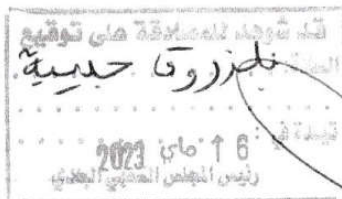 قد شوهد للمصادقة على توقيع
بلزروقا حبيبة
تيبازة في :
16 ماي 2023
رئيس المجلس الشعبي البلدي